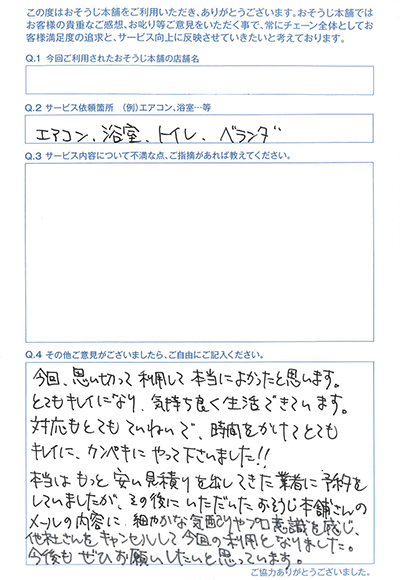 この度はおそうじ本舗をご利用いただき、ありがとうございます。おそうじ本舗では
お客様の貴重なご感想、お叱り等ご意見をいただく事で、常にチェーン全体としてお
客様満足度の追求と、サービス向上に反映させていきたいと考えております。
Q.1 今回ご利用されたおそうじ本舗の店舗名
Q.2 サービス依頼箇所 （例）エアコン、浴室…等
エアコン、浴室、トイレ、ベランダ
Q.3 サービス内容について不満な点、ご指摘があれば教えてください。
Q.4 その他ご意見がございましたら、ご自由にご記入ください。
今回、思い切って利用して本当によかったと思います。
とてもキレイになり、気持ち良く生活できています。
対応もとてもていねいで、時間をかけてとても
キレイに、カンペキにやって下さいました!!
本当はもっと安い見積りを出してきた業者に予約を
していましたが、その後にいただいたおそうじ本舗さんの
メールの内容に細やかな気配りやプロ意識を感じ、
他社さんをキャンセルして今回の利用となりました。
今後もぜひお願いしたいと思っています。
ご協力ありがとうございました。